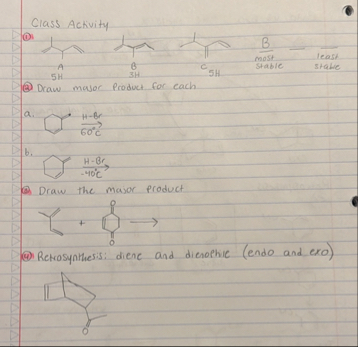 Class Activity
①
A B C
5H 3H 5H
B
most stable
least stable
② Draw major Product for each
a. H-Br
60°C
b. H-Br
-40°C
③ Draw the major product
O
+
O
④ Retrosynthesis: diene and dienophile (endo and exo)
O